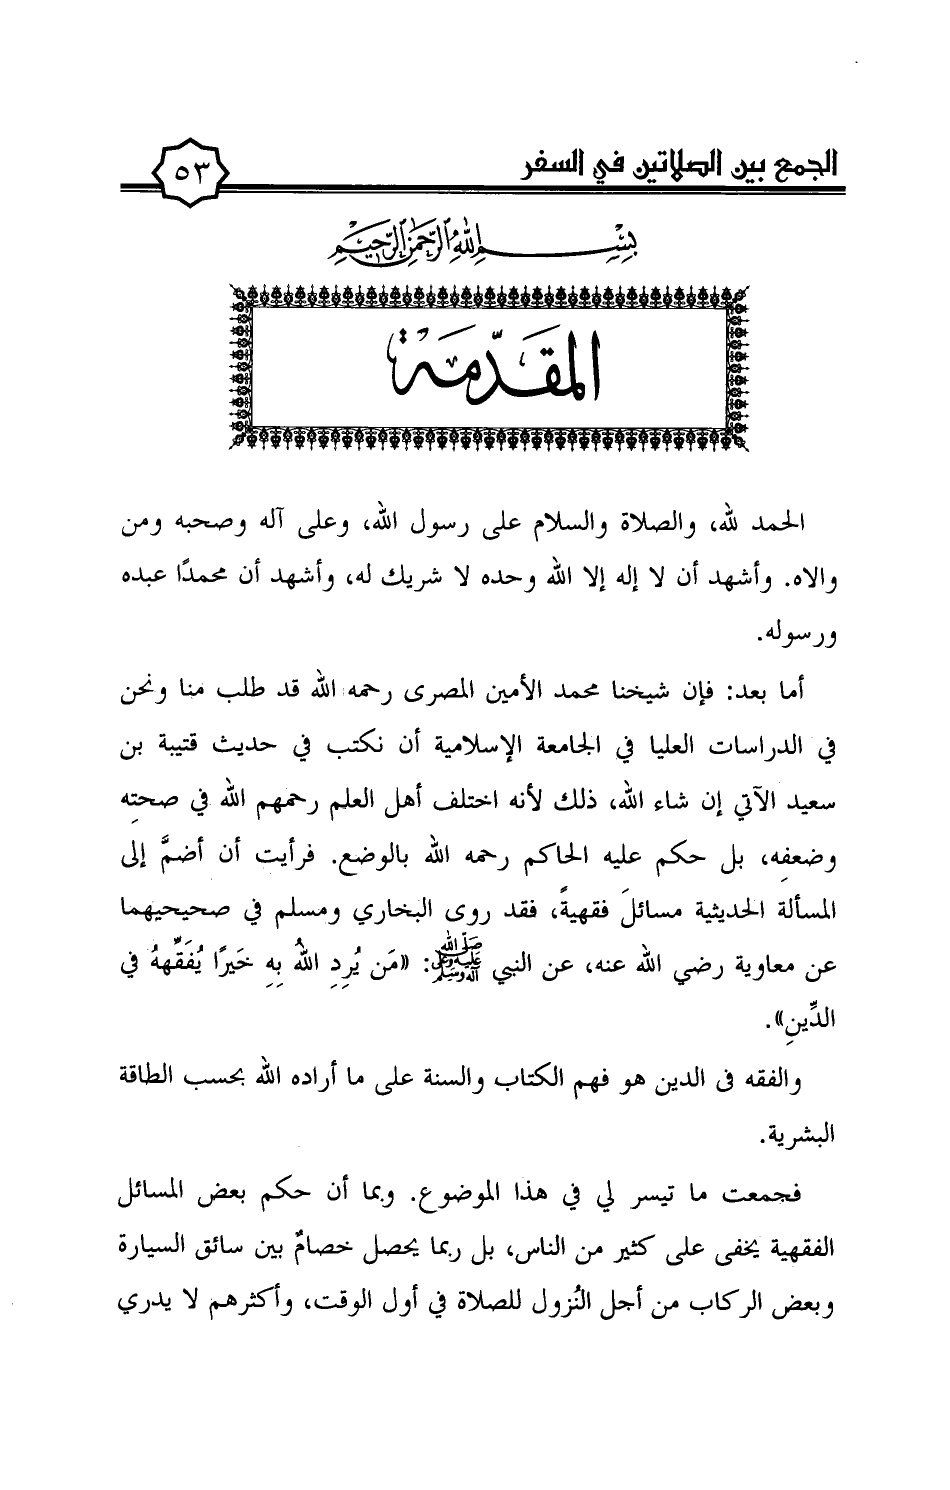 الجمع بين الصلاتين في السفر
٥٣
بسم الله الرحمن الرحيم
المقدّمة
الحمد لله، والصلاة والسلام على رسول الله، وعلى آله وصحبه ومن
والاه. وأشهد أن لا إله إلا الله وحده لا شريك له، وأشهد أن محمدًا عبده
ورسوله.
أما بعد: فإن شيخنا محمد الأمين المصرى رحمه الله قد طلب منا ونحن
في الدراسات العليا في الجامعة الإسلامية أن نكتب في حديث قتيبة بن
سعيد الآتي إن شاء الله، ذلك لأنه اختلف أهل العلم رحمهم الله في صحتِه
وضعفِه، بل حكم عليه الحاكم رحمه الله بالوضع. فرأيت أن أضمَّ إلى
المسألة الحديثية مسائلَ فقهيةً، فقد روى البخاري ومسلم في صحيحيهما
عن معاوية رضي الله عنه، عن النبي ﷺ: «مَن يُرِدِ اللهُ بِهِ خَيرًا يُفَقِّههُ في
الدِّينِ».
والفقه فى الدين هو فهم الكتاب والسنة على ما أراده الله بحسب الطاقة
البشرية.
فجمعت ما تيسر لي في هذا الموضوع. وبما أن حكم بعض المسائل
الفقهية يخفى على كثير من الناس، بل ربما يحصل خصامٌ بين سائق السيارة
وبعض الركاب من أجل النُزول للصلاة في أول الوقت، وأكثرهم لا يدري